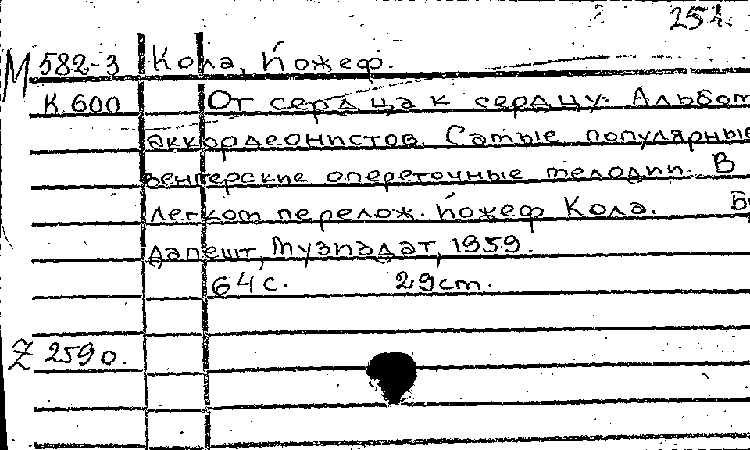 251.
М 582-3 Кола, Йожеф.
К.600 От сердца к сердцу. Альбом
аккордеонистов. Самые популярные
венгерские опереточные мелодии. В
легком перелож. Йожеф Кола. Бу
дапешт, Музиздат, 1959.
64 с. 29 см.
Z 2590.